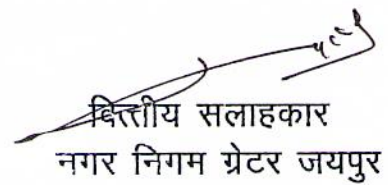 वित्तीय सलाहकार
नगर निगम ग्रेटर जयपुर